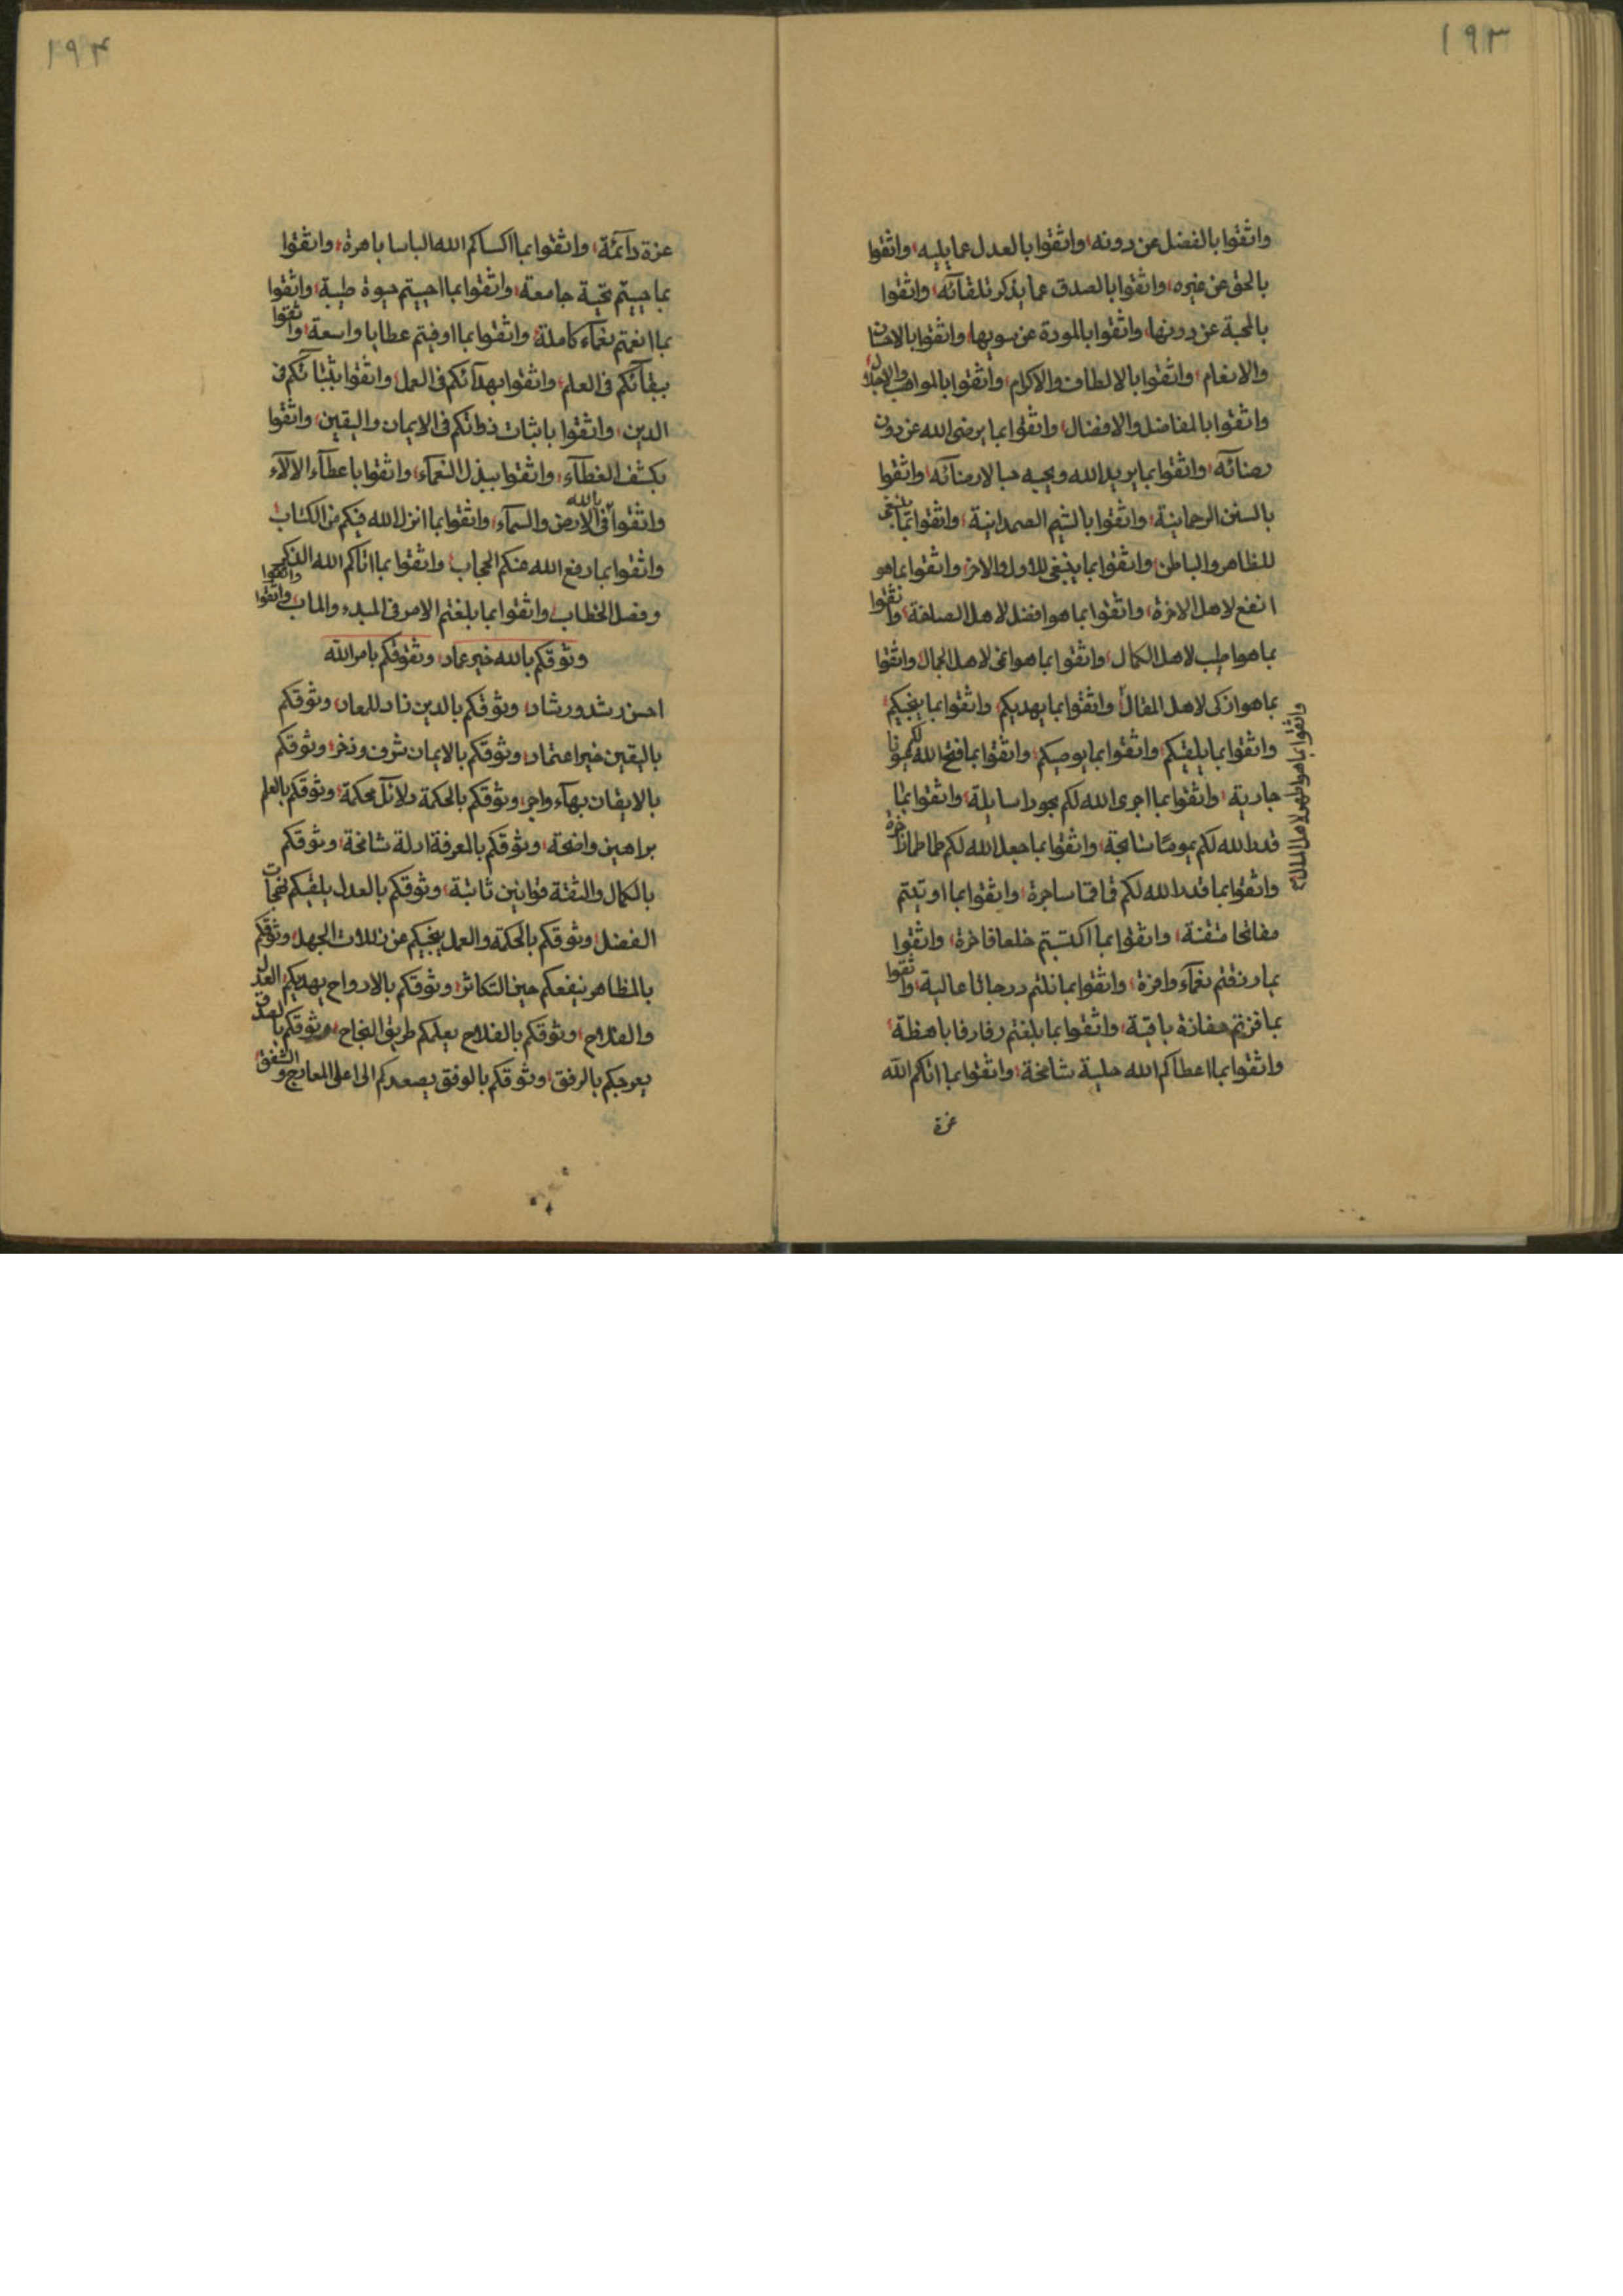 ١٩٣
واثقوا بالفضل عن دونه واثقوا بالعدل عما يليه واثقوا
بالحق عن غيره واثقوا بالصدق عما يذكر تلقائه واثقوا
بالمحبة عن دونها واثقوا بالمودة عن سويها واثقوا بالاحسان
والانعام واثقوا بالالطاف والاكرام واثقوا بالمواهب والاجلال
واثقوا بالمفاضل والافضال واثقوا بما يرضى الله عن دون
رضائه واثقوا بما يريد الله ويحبه حبا لارضائه واثقوا
بالسنن الرحمانية واثقوا بالشيم الصمدانية واثقوا بما ينبغى
للظاهر والباطن واثقوا بما ينبغى للاول والاخر واثقوا بما هو
انفع لاهل الاخرة واثقوا بما هو افضل لاهل الصاخة واثقوا
بما هو اطيب لاهل الكمال واثقوا بما هو اغنى لاهل الجمال واثقوا
بما هو ازكى لاهل المقال واثقوا بما يهديكم واثقوا بما ينجيكم
واثقوا بما يلقيكم واثقوا بما يوصيكم واثقوا بما فتح الله لكم عيونا
جارية واثقوا بما اجرى الله لكم بحورا سايلة واثقوا بما
قدر الله لكم يموما شامخة واثقوا بما جعل الله لكم طماطما ذاخرة
واثقوا بما قدر الله لكم قماقما ساجرة واثقوا بما اوتيتم
مفاتحا متقنة واثقوا بما اكتسبتم خلعا فاخرة واثقوا
بما رزقتم نعماء وافرة واثقوا بما نلتم درجاتا عالية واثقوا
بما فزتم مفازة باقية واثقوا بما بلغتم رفارفا باهظة
واثقوا بما اعطاكم الله حلية شامخة واثقوا بما اتاكم الله
عزة
واثقوا بما هو اطهر لاهل الملال
١٩٤
عزة دآئمة واثقوا بما اكساكم الله الباسا باهرة واثقوا
بما حييتم تحية جامعة واثقوا بما احييتم حيوة طيبة واثقوا
بما انعمتم نعماء كاملة واثقوا بما اوفيتم عطايا واسعة واثقوا
ببقائكم فى العلم واثقوا بهدآئكم فى العمل واثقوا بثباتكم فى
الدين واثقوا باثبات ذواتكم فى الايمان واليقين واثقوا
بكشف الغطآء واثقوا ببذل النعماء واثقوا باعطآء الالآء
واثقوا بالله فى الارض والسمآء واثقوا بما انزل الله فيكم من الكتاب
واثقوا بما رفع الله عنكم الحجاب واثقوا بما اتاكم الله الذكر واثقوا
وفصل الخطاب واثقوا بما بلغتم الامر فى المبدء والماب واثقوا
وثوقكم بالله خير عماد وثقوفكم بامر الله
احسن رشد ورشاد وثوقكم بالدين زاد للمعاد وثوقكم
باليقين خير اعتماد وثوقكم بالايمان شرف وذخر وثوقكم
بالايقان بهآء واجر وثوقكم بالحكمة دلائل محكمة وثوقكم بالعلم
براهين واضحة وثوقكم بالمعرفة ادلة شامخة وثوقكم
بالكمال والثقة قوانين ثابتة وثوقكم بالعدل يلقيكم نفحات
الفضل وثوقكم بالحكمة والعمل ينجيكم عن زلات الجهل وثوقكم
بالمظاهر ينفعكم حين التكاثر وثوقكم بالارواح يهديكم العدل
والفلاح وثوقكم بالفلاح يعلمكم طريق النجاح وثوقكم بالصدق
يعرجكم بالرفق وثوقكم بالوفق يصعدكم الى اعلى المعارج والشفق